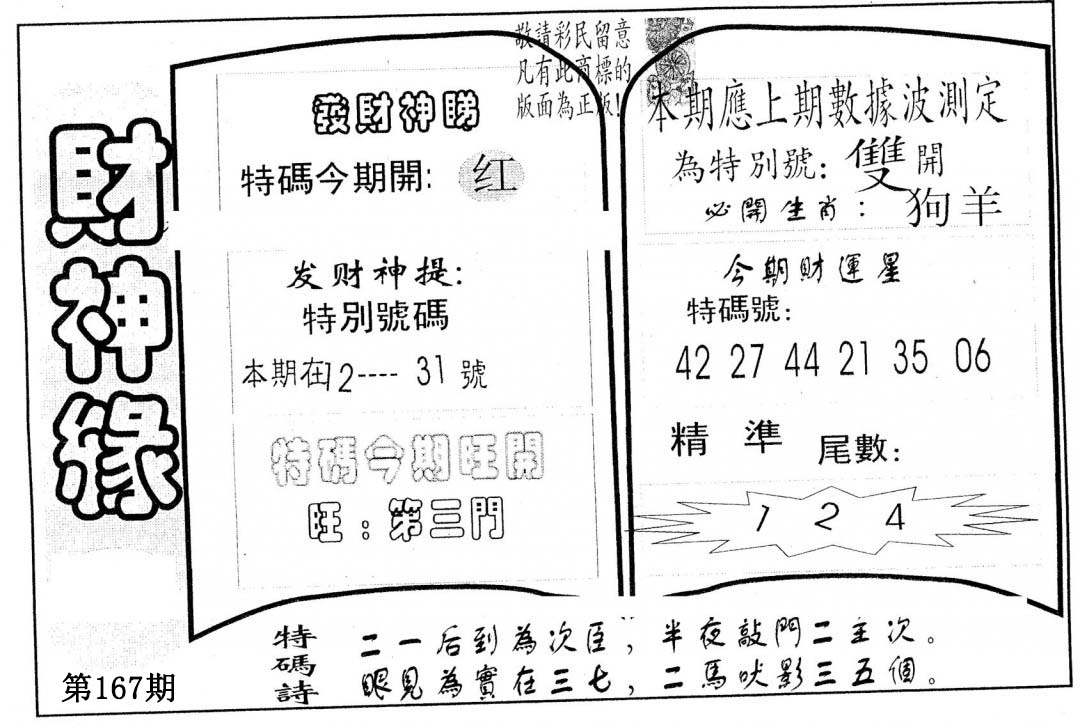 財神緣
第167期
敬請彩民留意
凡有此商標的
版面為正版!
發財神睇
特碼今期開: 红
发财神提:
特別號碼
本期在12---- 31 號
特碼今期旺開
旺:第三門
本期應上期數據波測定
為特別號:雙開
必開生肖:狗羊
今期財運星
特碼號:
42 27 44 21 35 06
精準 尾數:
1 2 4
特碼詩
二一后到為次臣,半夜敲門二主次。
眼見為實在三七,二馬吠影三五個。